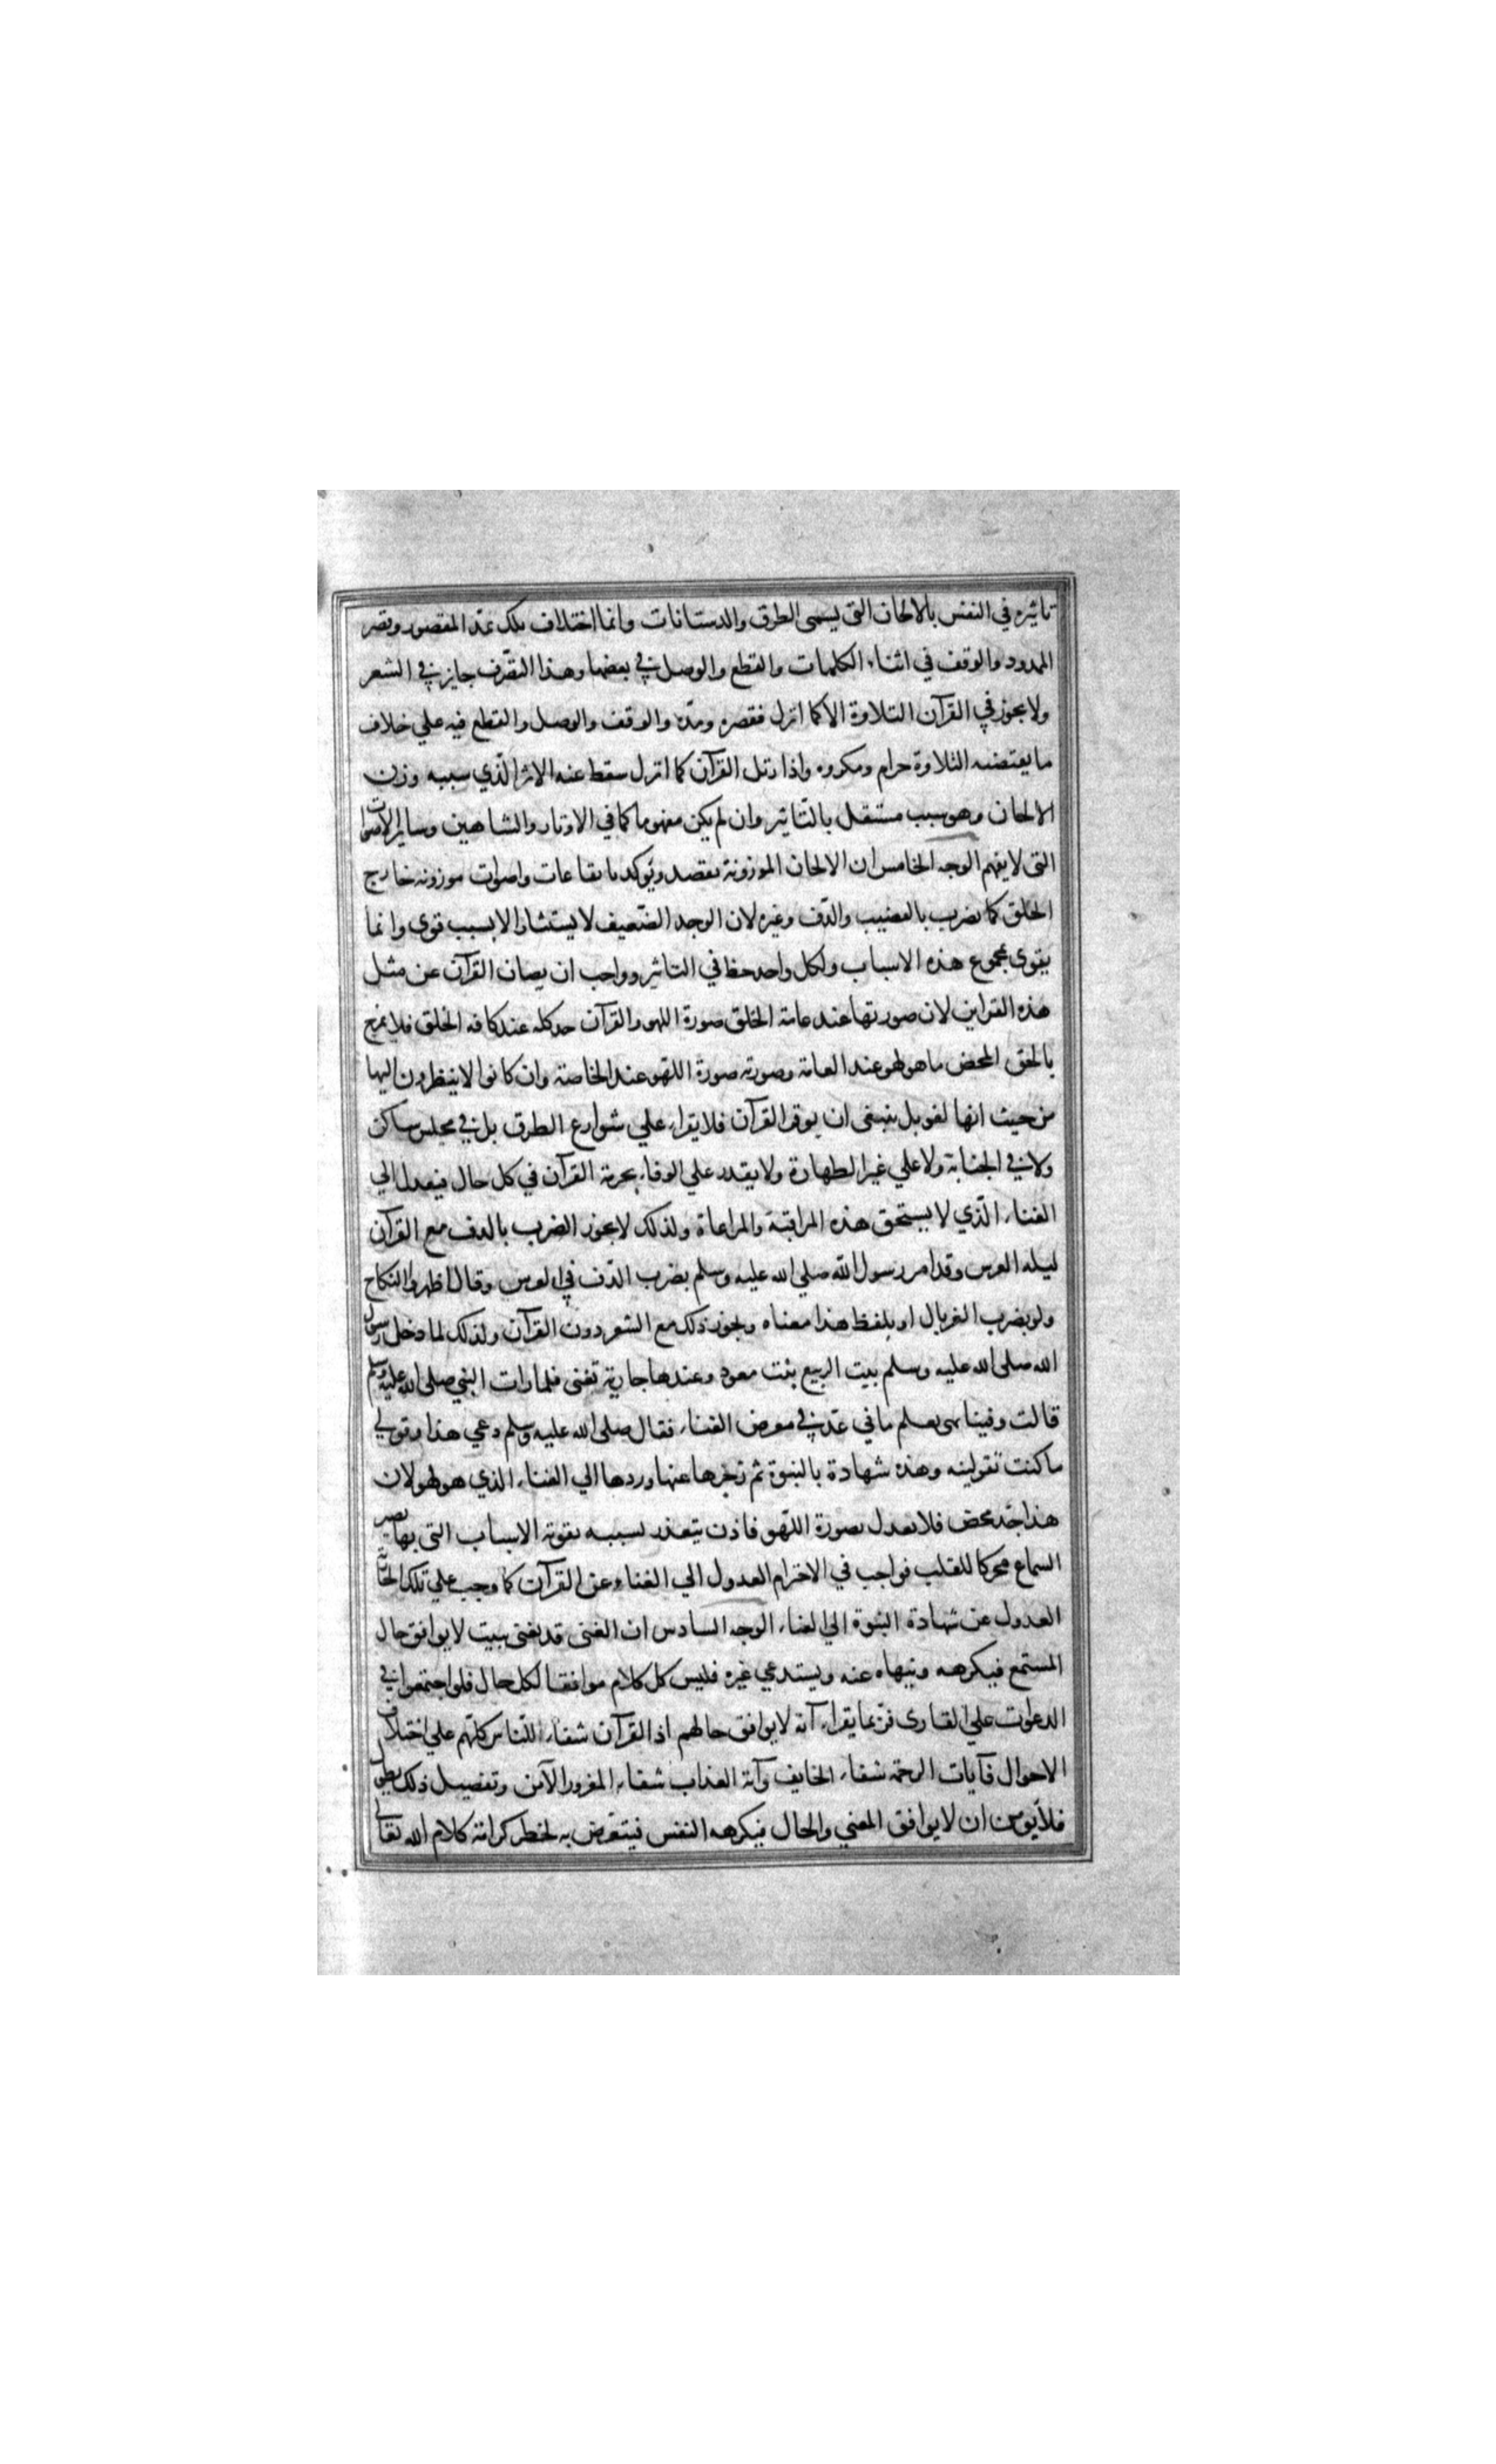 تاثيره في النفس بالالحان التي يسمى الطرق والدستانات وانما اختلاف تلك بمد المقصور وقصر
الممدود والوقف في اثناء الكلمات والقطع والوصل في بعضها وهذا التصّرف جايز في الشعر
ولا يجوز في القرآن التلاوة الا كما انزل فقصره ومدّه والوقف والوصل والقطع فيه علي خلاف
ما يقتضيه التلاوة حرام ومكروه واذا رتل القرآن كما انزل سقط عنه الاثر الذّي سببه وزن
الالحان وهو سبب مستقل بالتّاثير وان لم يكن مفهوما كما في الاوتار والشاهين وساير الاصوات
التي لا يفهم الوجه الخامس ان الالحان الموزونة يعضد ويوكد بايقاعات واصوات موزونه خارج
الحلق كما يضرب بالقضيب والدّف وغيره لان الوجد الضّعيف لا يستثار الا بسبب قوى وانما
يقوى بمجموع هذه الاسباب ولكل واحد حظ في التاثير وواجب ان يصان القرآن عن مثل
هذه القراين لان صورتها عند عامة الخلق صورة اللهو والقرآن جد كله عند كافه الخلق فلا يمزج
بالحق المحض ما هو لهو عند العامة وصورته صورة اللّهو عند الخاصة وان كانوا لا ينظرون اليها
من حيث انها لهو بل ينبغى ان يوقر القرآن فلا يقراء علي شوارع الطرق بل في مجلس ساكن
ولا في الجنابة ولا علي غير الطهارة ولا يقدر علي الوفاء بحرمة القرآن في كل حال فيعدل الي
الغناء الّذي لا يستحق هذه المراقبة والمراعاة ولذلك لا يجوز الضرب بالدف مع القرآن
ليله العرس وقد امر رسول اللّه صلي الله عليه وسلم بضرب الدّف في العرس وقال اظهروا النكاح
ولو بضرب الغربال او بلفظ هذا معناه ويجوز ذلك مع الشعر دون القرآن ولذلك لما دخل رسول
الله صلى الله عليه وسلم بيت الربيع بنت معوذ وعندها جارية تغنى فلما رات النبي صلى الله عليه وسلم
قالت وفينا نبي يعلم ما في غد في معرض الغناء فقال صلى الله عليه وسلم دعي هذا وقولي
ما كنت تقولينه وهذه شهادة بالنبوة ثم زجرها عنها وردها الي الغناء الذي هو لهو لان
هذا جد محض فلا يعدل بصورة اللّهو فاذن يتعذر بسببه تقوية الاسباب التي بها يصير
السماع محركا للقلب فواجب في الاحترام العدول الي الغناء عن القرآن كما وجب علي تلك الجارية
العدول عن شهادة النبوة الي الغناء الوجه السادس ان المغنى قد يغنى ببيت لا يوافق حال
المستمع فيكرهه وينهاه عنه ويستدعي غيره فليس كل كلام موافقا لكل حال فلو اجتمعوا في
الدعوات علي القارى فربما يقراء آية لا يوافق حالهم اذ القرآن شفاء للنّاس كلّهم علي اختلاف
الاحوال فآيات الرحمة شفاء الخايف وآية العذاب شفاء المغرور الآمن وتفصيل ذلك يطول
فلا يومن ان لا يوافق المعني والحال فيكرهه النفس فيتعرّض به لخطر كراهة كلام الله تعالي